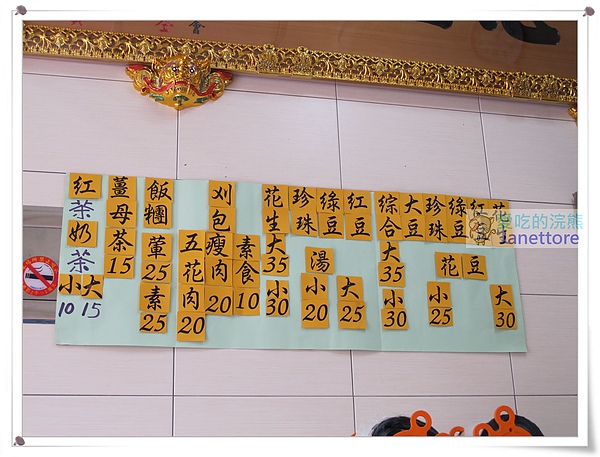 會
紅茶
奶茶
小 大
10 15
薑母茶
15
飯糰
葷
25
素
25
刈包
五花肉
20
瘦肉
20
素食
10
花生
大
35
小
30
珍珠
綠豆
紅豆
湯
小
20
大
25
綜合
大
35
小
30
大豆
珍珠
綠豆
紅豆
花
豆花
小
25
大
30
愛吃的浣熊
Janettore